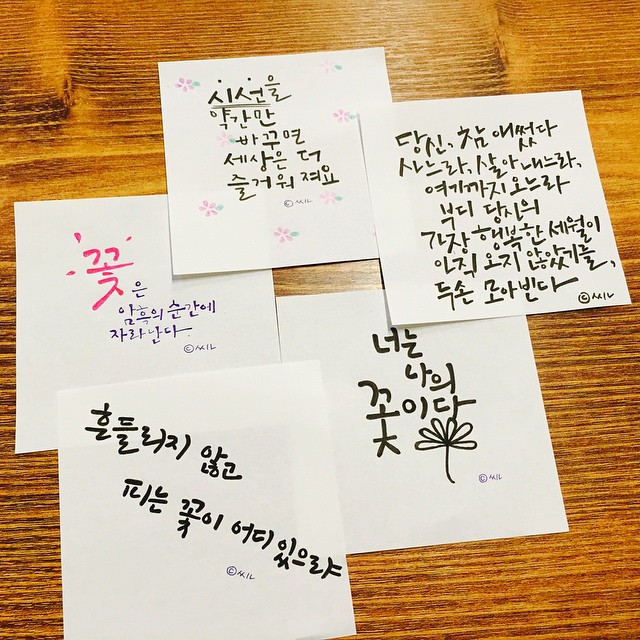 시선을
약간만
바꾸면
세상은 더
즐거워져요
©씨ㄴ
당신, 참 애썼다
사느라, 살아내느라,
여기까지 오느라
부디 당신의
가장 행복한 세월이
아직 오지 않았기를,
두손 모아빈다
©씨ㄴ
꽃은
암흑의 순간에
자라난다
©씨ㄴ
너는
나의
꽃이다
©씨ㄴ
흔들리지 않고
피는 꽃이 어디 있으랴
©씨ㄴ